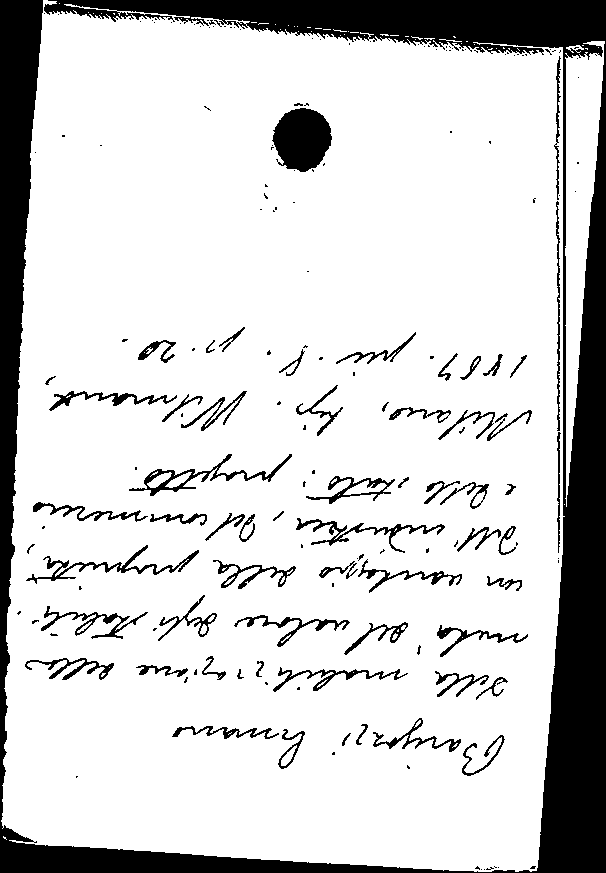 Barigozzi Ermano
Della mobilizzazione della
metà del valore degli stabili.
in vantaggio della proprietà,
dell'industria, del commercio
e dello stato: progetto.
Milano, tip. Wilmant,
1867. picc. 8. p. 20.